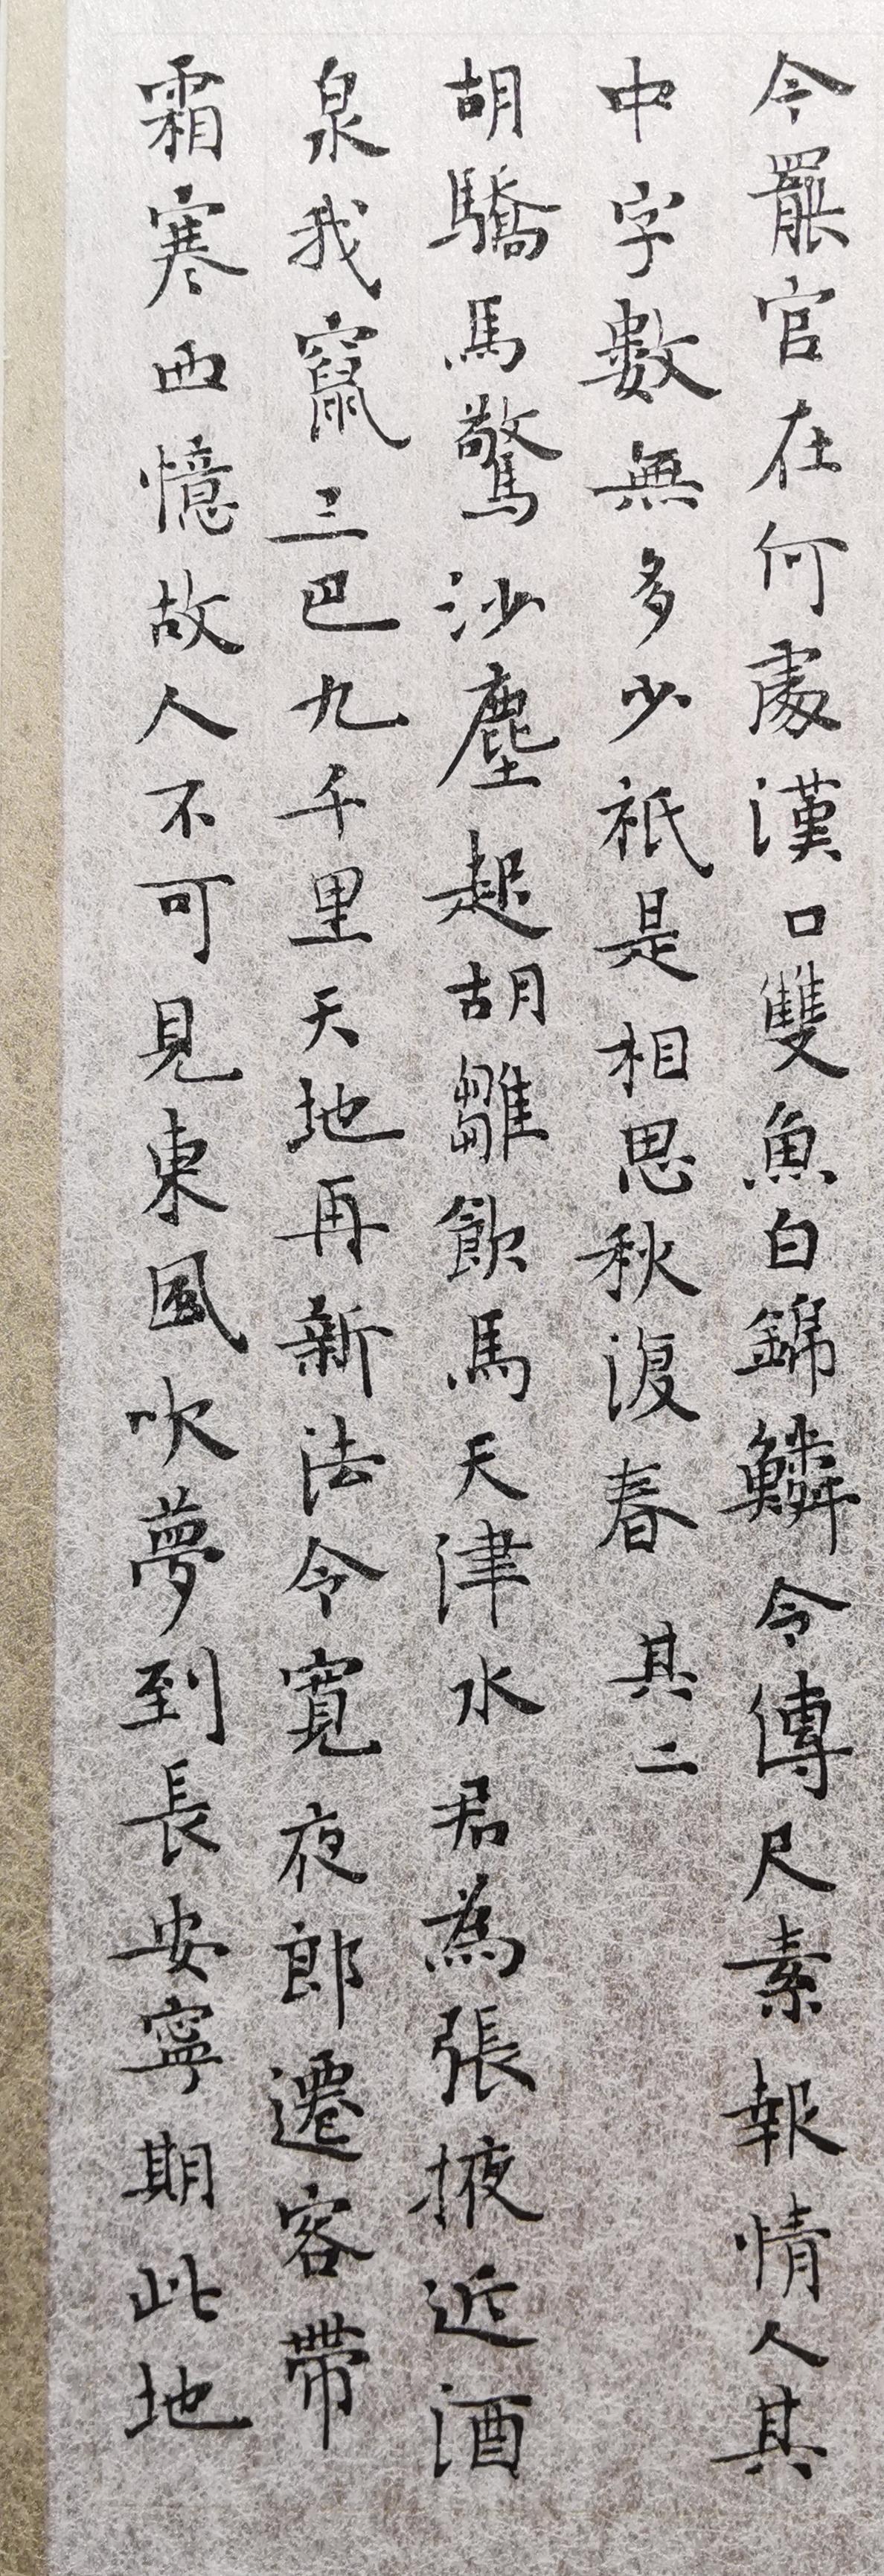 今罷官在何處漢口雙魚白錦鱗令傳尺素報情人其
中字數無多少祇是相思秋復春 其二
胡驕馬驚沙塵起胡雛飲馬天津水君為張掖近酒
泉我竄三巴九千里天地再新法令寬夜郎遷客帶
霜寒西憶故人不可見東風吹夢到長安寧期此地